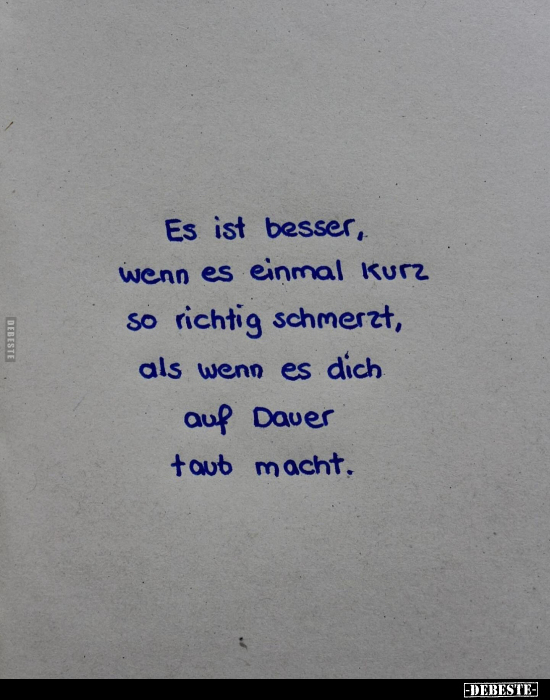 Es ist besser,
wenn es einmal kurz
so richtig schmerzt,
als wenn es dich
auf Dauer
taub macht.
DEBESTE
-DEBESTE-